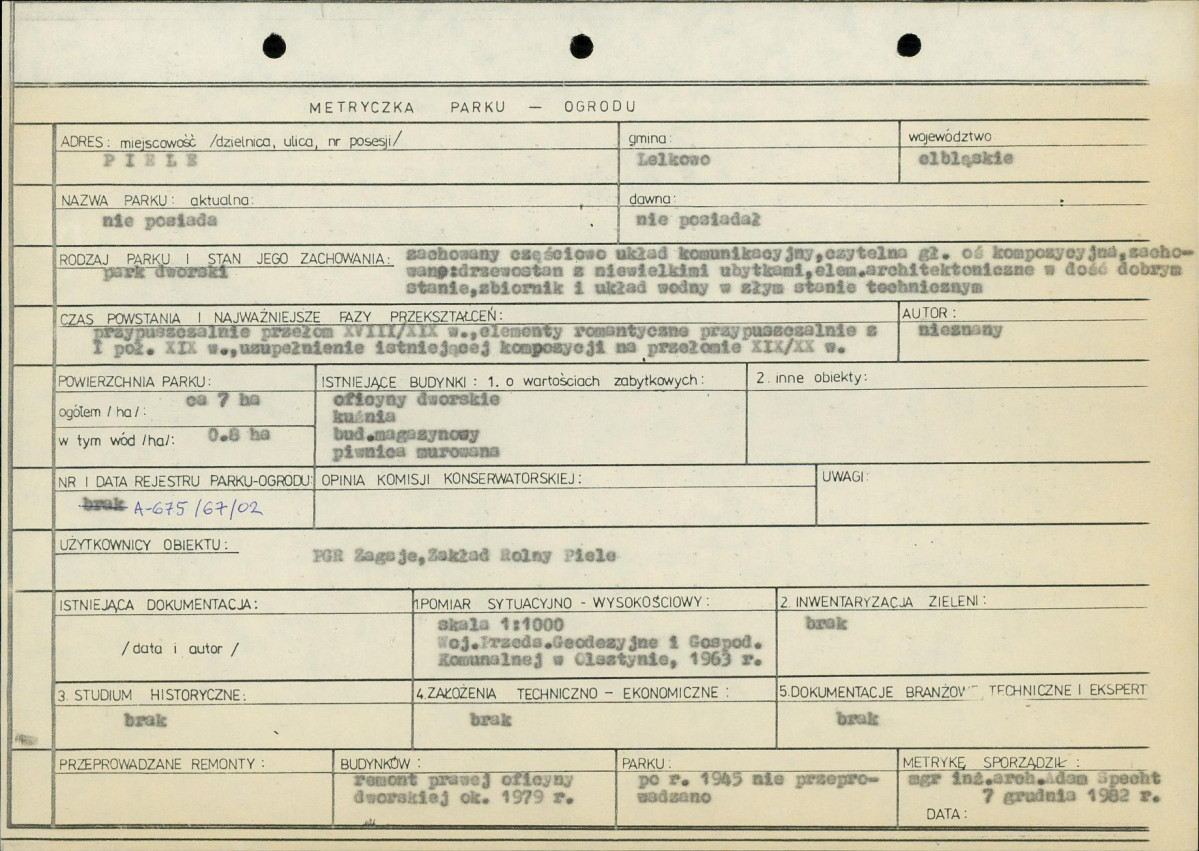 METRYCZKA PARKU – OGRODU
ADRES: miejscowość /dzielnica, ulica, nr posesji/
PIELE
gmina:
Lelkowo
województwo
elbląskie
NAZWA PARKU: aktualna:
nie posiada
dawna:
nie posiadał
RODZAJ PARKU I STAN JEGO ZACHOWANIA:
park dworski
zachowany częściowo układ komunikacyjny,czytelna gł. oś kompozycyjna,zacho-
wane:drzewostan z niewielkimi ubytkami,elem.architektoniczne w dość dobrym
stanie,zbiornik i układ wodny w złym stanie technicznym
CZAS POWSTANIA I NAJWAŻNIEJSZE FAZY PRZEKSZTAŁCEŃ:
przypuszczalnie przełom XVIII/XIX w.,elementy romantyczne przypuszczalnie z
I poł. XIX w.,uzupełnienie istniejącej kompozycji na przełomie XIX/XX w.
AUTOR:
nieznany
POWIERZCHNIA PARKU:
ogółem /ha/: ca 7 ha
w tym wód /ha/: 0.8 ha
ISTNIEJĄCE BUDYNKI: 1. o wartościach zabytkowych:
oficyny dworskie
kuźnia
bud.magazynowy
piwnica murowana
2. inne obiekty:
NR I DATA REJESTRU PARKU-OGRODU:
brak A-675/67/02
OPINIA KOMISJI KONSERWATORSKIEJ:
UWAGI:
UŻYTKOWNICY OBIEKTU:
PGR Zagaje,Zakład Rolny Piele
ISTNIEJĄCA DOKUMENTACJA:
/data i autor/
1.POMIAR SYTUACYJNO - WYSOKOŚCIOWY:
skala 1:1000
Woj.Przeds.Geodezyjne i Gospod.
Komunalnej w Olsztynie, 1963 r.
2. INWENTARYZACJA ZIELENI:
brak
3. STUDIUM HISTORYCZNE:
brak
4.ZAŁOŻENIA TECHNICZNO - EKONOMICZNE:
brak
5.DOKUMENTACJE BRANŻOW TECHNICZNE I EKSPERT
brak
PRZEPROWADZANE REMONTY:
BUDYNKÓW:
remont prawej oficyny
dworskiej ok. 1979 r.
PARKU:
po r. 1945 nie przepro-
wadzano
METRYKĘ SPORZĄDZIŁ:
mgr inż.arch.Adam Specht
7 grudnia 1982 r.
DATA: